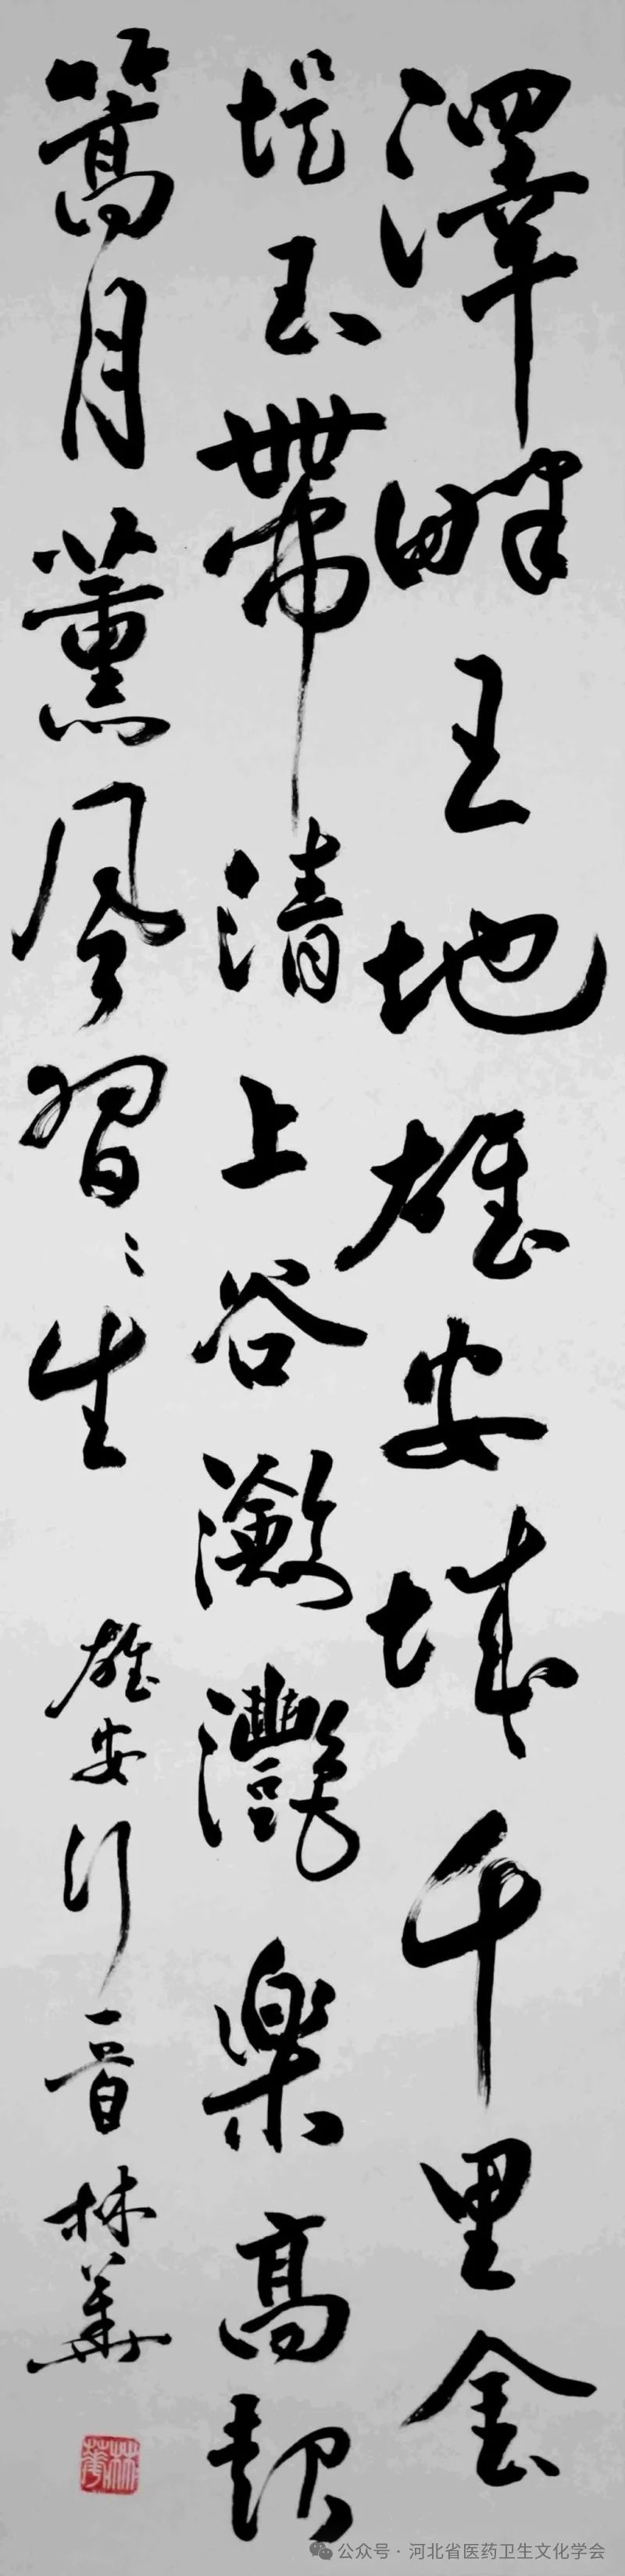 澤畔王地雄安城千里金
堤玉帶清上谷瀲灩樂高
篙月薰風習〻生
雄安行 林華
林華
公众号·河北省医药卫生文化学会